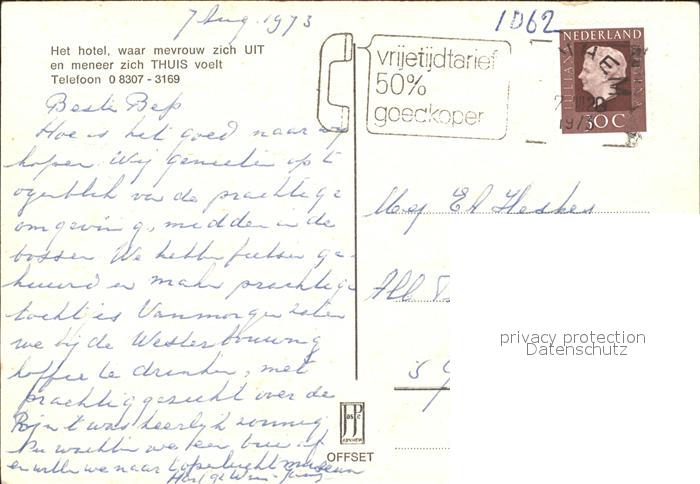 7 Aug. 1973
1D62
Het hotel, waar mevrouw zich UIT
en meneer zich THUIS voelt
Telefoon 0 8307 - 3169
vrijetijdtarief
50%
goedkoper
NEDERLAND
JULIANA
1973
50 C
Beste Bep
Hoe is het goed naar wij
hopen. Wij genieten op 't
ogenblik van de prachtige
omgeving, midden in de
bossen. We hebben fietsen ge-
huurd en maken prachtige
tochtjes. Vanmorgen zaten
we bij de Westerbouwing
koffie te drinken, met
prachtig gezicht over de
Rijn 't was heerlijk zonnig
Nu wachten we een bui af
en willen we naar 't openlucht museum
Mej E A Heskes
All
is
JosPé
ARNHEM
OFFSET
privacy protection
Datenschutz